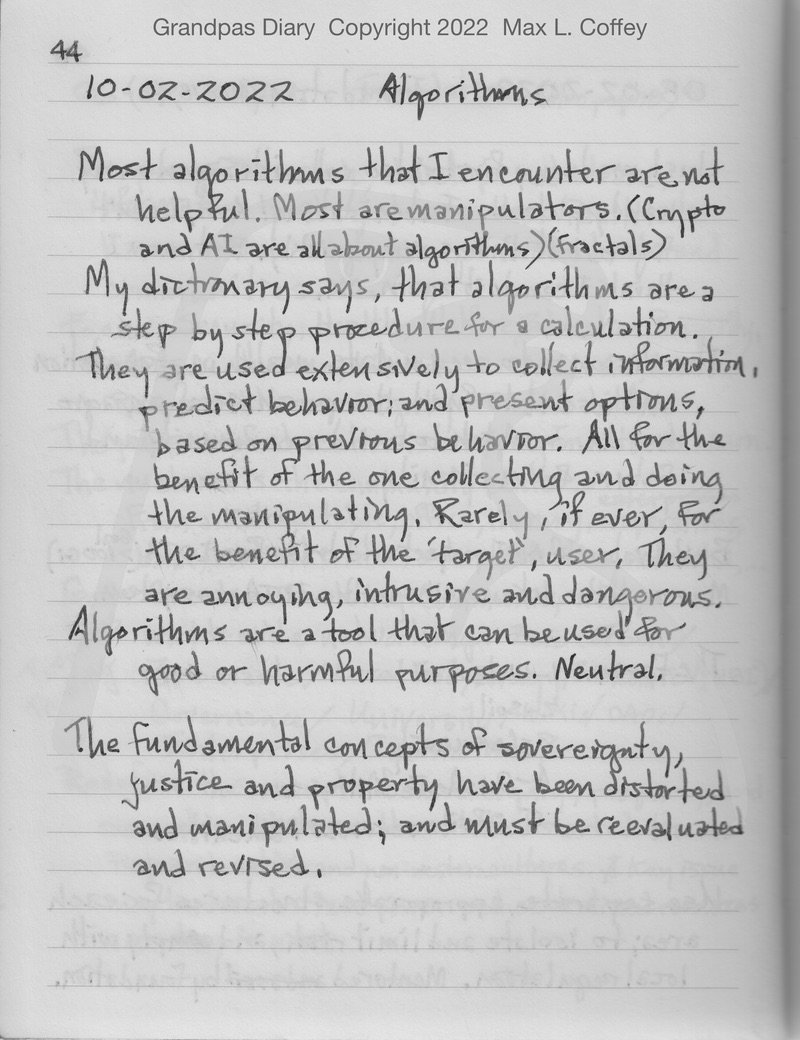 Grandpas Diary Copyright 2022 Max L. Coffey
44
10-02-2022 Algorithms
Most algorithms that I encounter are not
helpful. Most are manipulators. (Crypto
and AI are all about algorithms) (Fractals)
My dictionary says, that algorithms are a
step by step procedure for a calculation.
They are used extensively to collect information,
predict behavior; and present options,
based on previous behavior. All for the
benefit of the one collecting and doing
the manipulating. Rarely, if ever, for
the benefit of the 'target', user. They
are annoying, intrusive and dangerous.
Algorithms are a tool that can be used for
good or harmful purposes. Neutral.
The fundamental concepts of sovereignty,
justice and property have been distorted
and manipulated; and must be reevaluated
and revised.